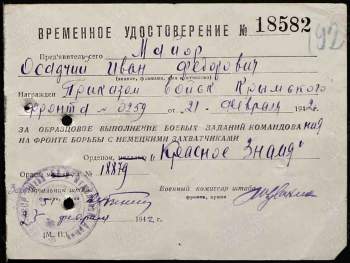 ВРЕМЕННОЕ УДОСТОВЕРЕНИЕ № 18582
Пред'явитель сего Майор
Осадчий Иван Федорович
Награжден Приказом войск Крымского
фронта № 0259 от 21 февраля 1942г.
ЗА ОБРАЗЦОВОЕ ВЫПОЛНЕНИЕ БОЕВЫХ ЗАДАНИЙ КОМАНДОВАНИЯ
НА ФРОНТЕ БОРЬБЫ С НЕМЕЦКИМИ ЗАХВАТЧИКАМИ
Орденом „Красное Знамя"
№ 18879
Военный комиссар штаба
фронта
февраля 1942 г.
(М. П.)